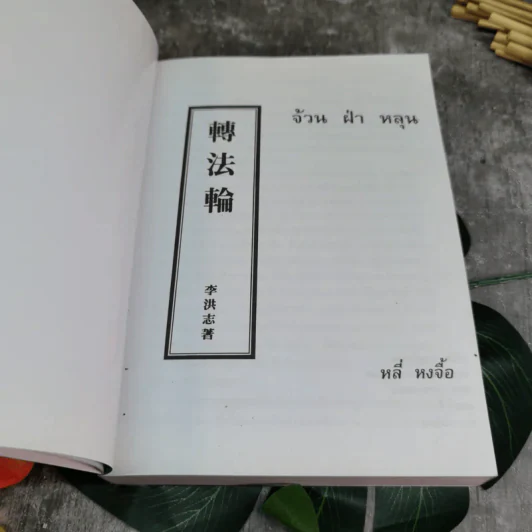 轉法輪
李洪志著
จ้วน ฝ่า หลุน
หลี่ หงจื้อ